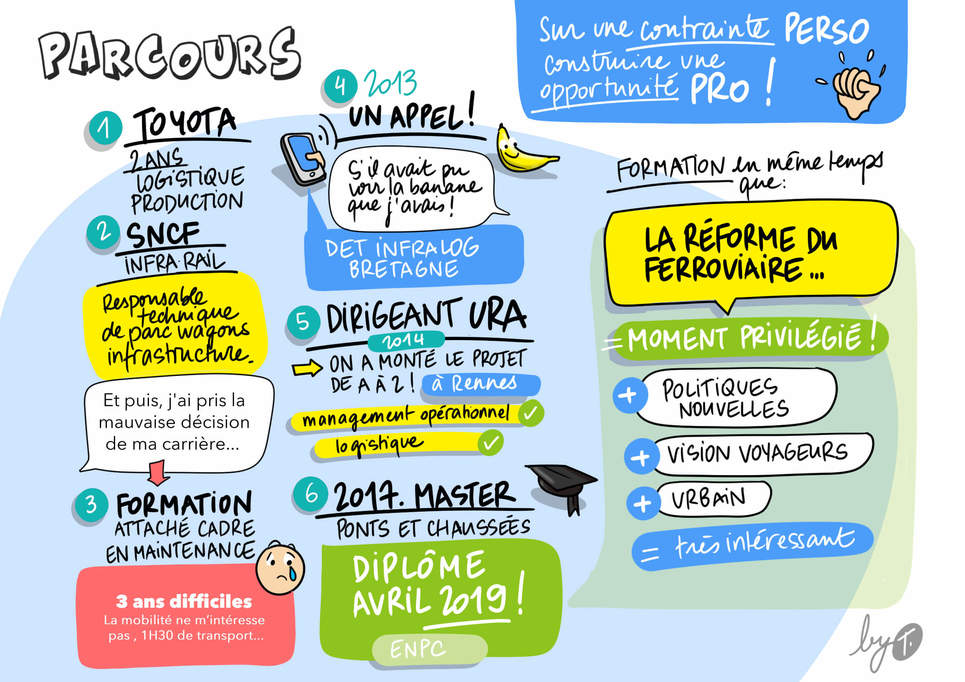 PARCOURS
Sur une contrainte PERSO
construire une
opportunité PRO !
1 TOYOTA
2 ANS
LOGISTIQUE
PRODUCTION
2 SNCF
INFRA RAIL
Responsable
technique
de parc wagons
infrastructure.
Et puis, j'ai pris la
mauvaise décision
de ma carrière...
3 FORMATION
ATTACHÉ CADRE
EN MAINTENANCE
3 ans difficiles
La mobilité ne m'intéresse
pas , 1H30 de transport...
4 2013
UN APPEL !
S'il avait pu
voir la banane
que j'avais !
DET INFRALOG
BRETAGNE
5 DIRIGEANT URA
2014
ON A MONTÉ LE PROJET
DE A à Z ! à Rennes
management opérationnel
logistique
6 2017. MASTER
PONTS ET CHAUSSÉES
DIPLÔME
AVRIL 2019 !
ENPC
FORMATION en même temps
que :
LA RÉFORME DU
FERROVIAIRE ...
= MOMENT PRIVILÉGIÉ !
+ POLITIQUES
NOUVELLES
+ VISION VOYAGEURS
+ URBAIN
= très intéressant
by T.